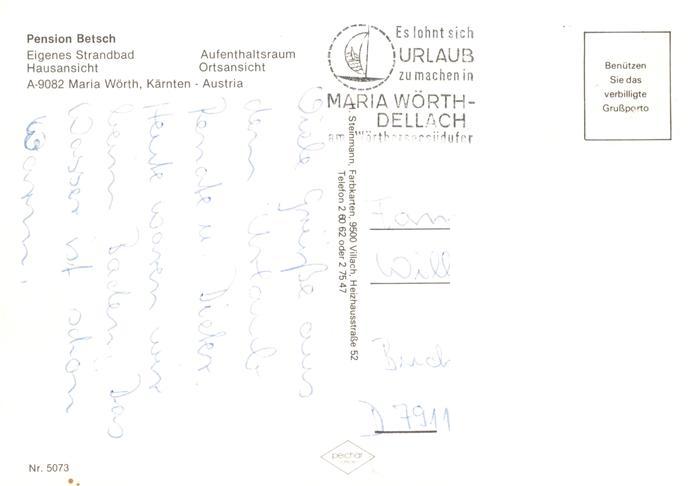 Pension Betsch
Eigenes Strandbad Aufenthaltsraum
Hausansicht Ortsansicht
A-9082 Maria Wörth, Kärnten - Austria
Es lohnt sich
URLAUB
zu machen in
MARIA WÖRTH-
DELLACH
am Wörthersee südufer
Benützen
Sie das
verbilligte
Grußporto
Viele Grüße aus
dem Urlaub
Renate u. Dieter.
Heute waren wir
beim Baden. Das
Wasser ist schön
Warm.
H. Steinmann, Farbkarten, 9500 Villach, Heizhausstraße 52
Telefon 2 80 62 oder 2 75 47
Fam
Will
Buch
D 7911
pechar
Nr. 5073